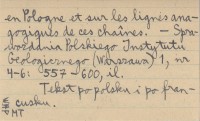 en Pologne et sur les lignes ana-
gogiques de ces chaînes. — Spra-
wozdania Polskiego Instytutu
Geologicznego (Warszawa) 1, nr
4-6: 557-600, il.
Tekst po polsku i po fran-
cusku.
MT